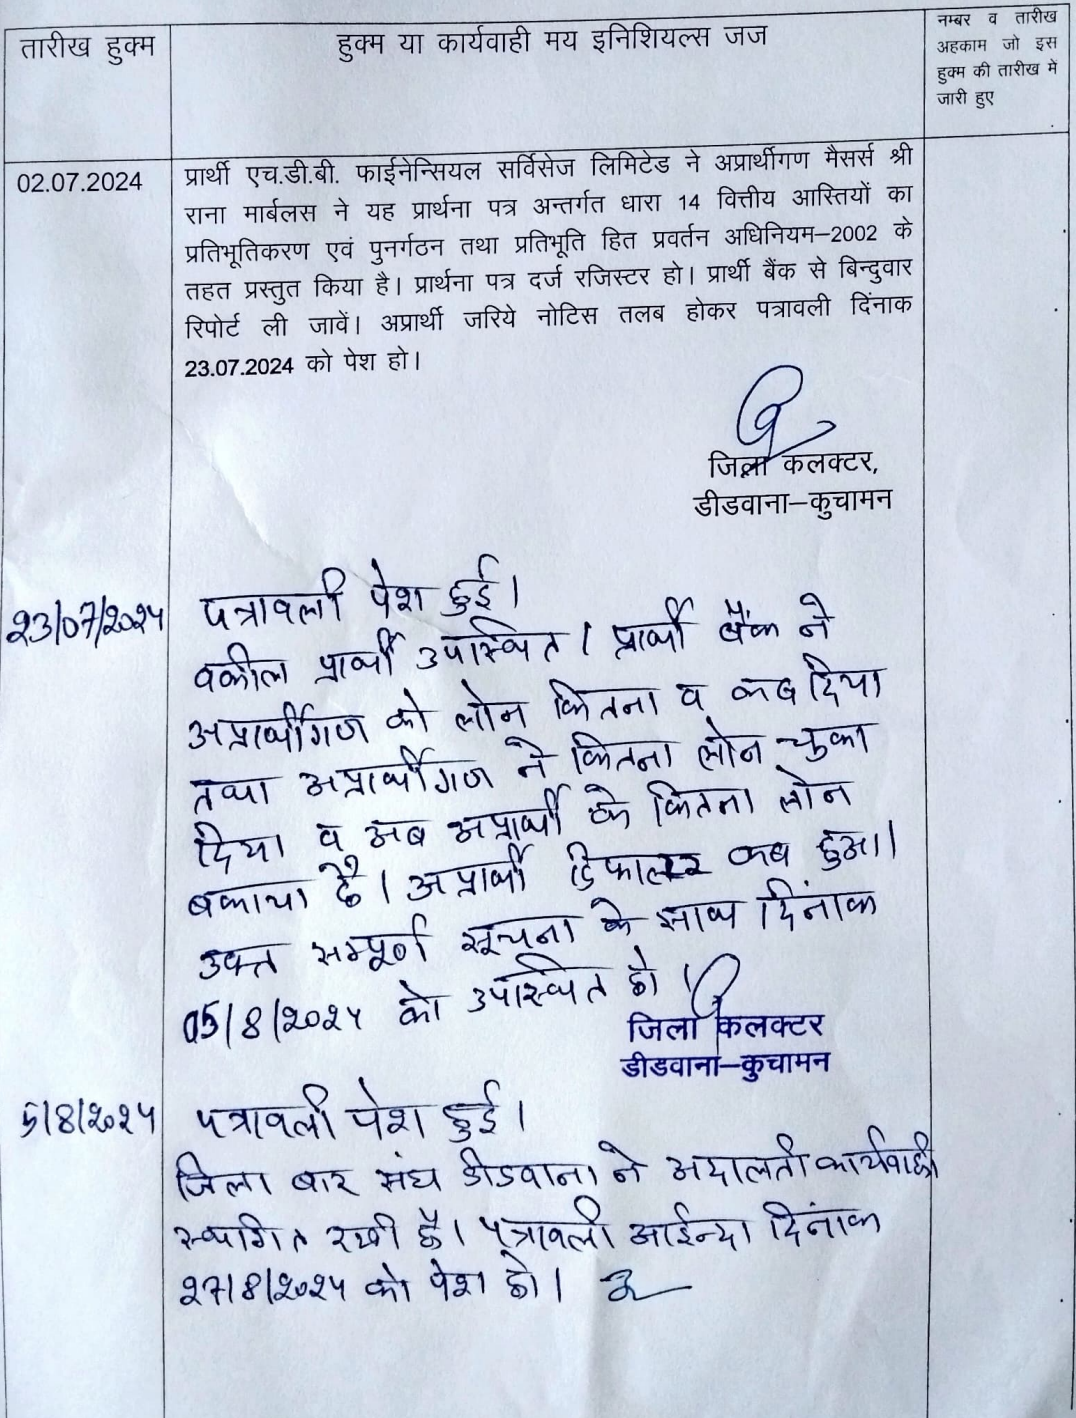 तारीख हुक्म
हुक्म या कार्यवाही मय इनिशियल्स जज
नम्बर व तारीख
अहकाम जो इस
हुक्म की तारीख में
जारी हुए
02.07.2024
प्रार्थी एच.डी.बी. फाईनेन्सियल सर्विसेज लिमिटेड ने अप्रार्थीगण मैसर्स श्री
राना मार्बलस ने यह प्रार्थना पत्र अन्तर्गत धारा 14 वित्तीय आस्तियों का
प्रतिभूतिकरण एवं पुनर्गठन तथा प्रतिभूति हित प्रवर्तन अधिनियम–2002 के
तहत प्रस्तुत किया है। प्रार्थना पत्र दर्ज रजिस्टर हो। प्रार्थी बैंक से बिन्दुवार
रिपोर्ट ली जावें। अप्रार्थी जरिये नोटिस तलब होकर पत्रावली दिंनाक
23.07.2024 को पेश हो।
जिला कलक्टर,
डीडवाना–कुचामन
23/07/2024
पत्रावली पेश हुई।
वकील प्रार्थी उपस्थित। प्रार्थी बैंक ने
अप्रार्थीगण को लोन कितना व कब दिया
तथा अप्रार्थीगण ने कितना लोन चुका
दिया व अब अप्रार्थी के कितना लोन
बकाया है। अप्रार्थी डिफाल्टर कब हुआ।
उक्त सम्पूर्ण सूचना के साथ दिंनाक
05/8/2024 को उपस्थित हो।
जिला कलक्टर
डीडवाना–कुचामन
5/8/2024
पत्रावली पेश हुई।
जिला बार संघ डीडवाना ने अदालती कार्यवाही
स्थगित रखी है। पत्रावली आईन्दा दिंनाक
27/8/2024 को पेश हो।